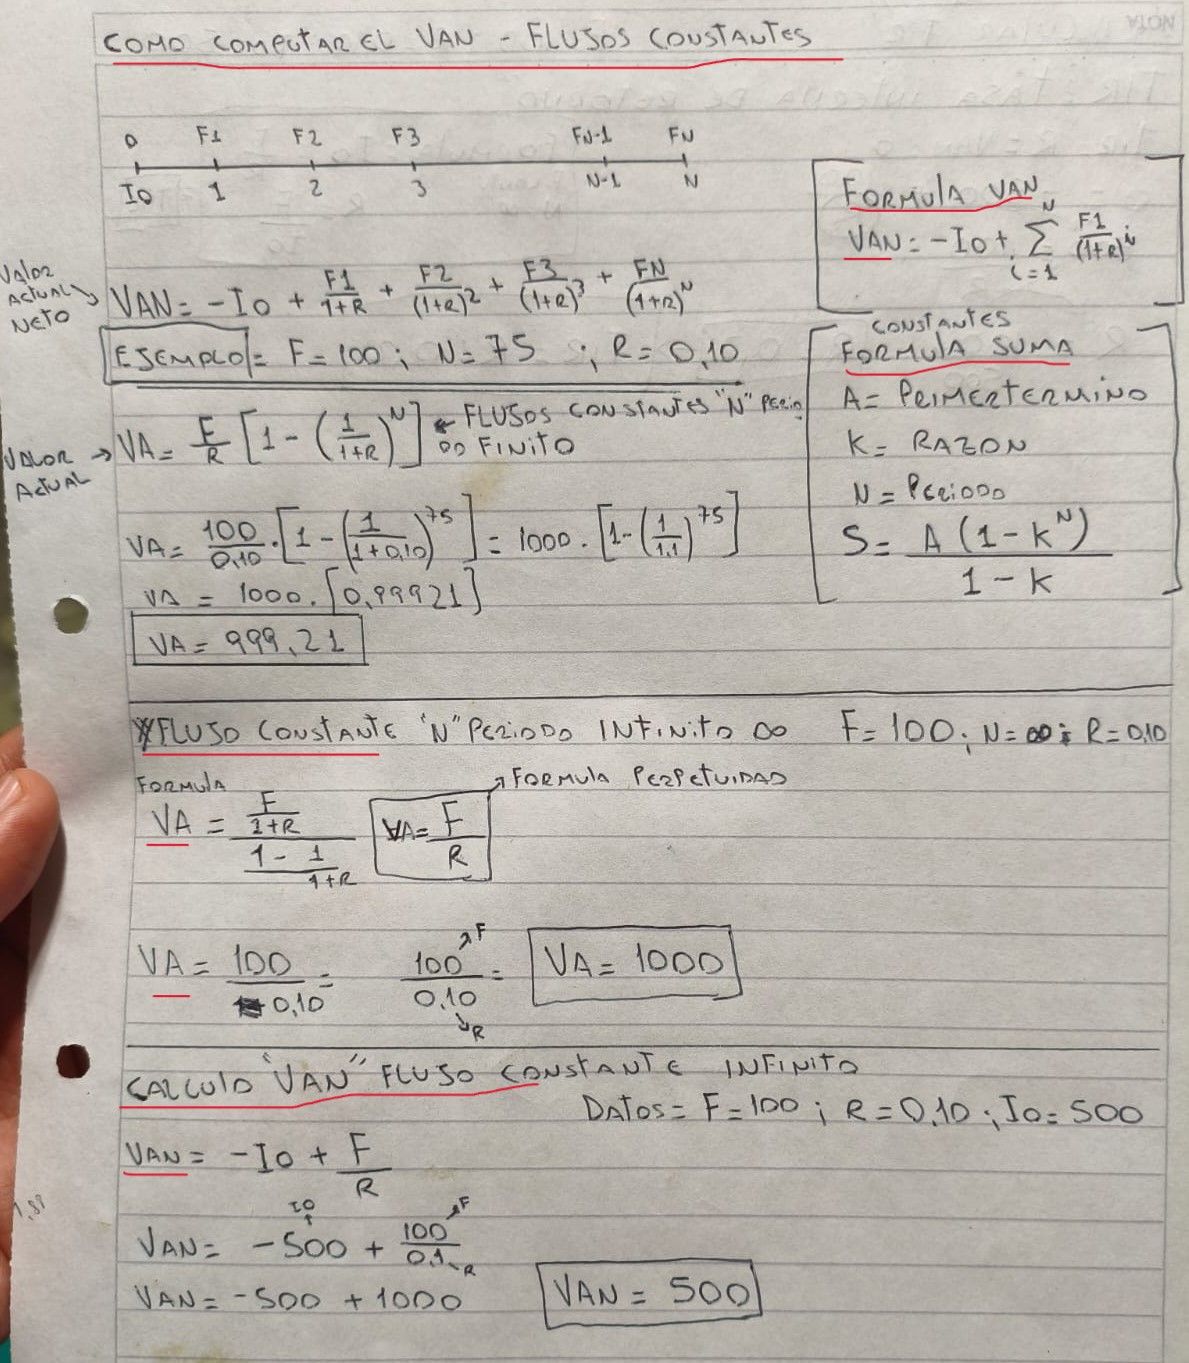 COMO COMPUTAR EL VAN - FLUJOS CONSTANTES
NOTA
0 F1 F2 F3 FN-1 FN
I0 1 2 3 N-1 N
FORMULA VAN
VAN = -I0 + N Σ i=1 F1/(1+R)^i
VALOR ACTUAL NETO → VAN = -I0 + F1/1+R + F2/(1+R)^2 + F3/(1+R)^3 + FN/(1+R)^N
EJEMPLO = F=100 ; N=75 ; R=0,10
CONSTANTES
FORMULA SUMA
A = PRIMER TERMINO
K = RAZON
N = PERIODO
S = A(1-K^N)/1-K
VALOR ACTUAL → VA = F/R [1-(1/1+R)^N] ← FLUJOS CONSTANTES "N" PERIO
DO FINITO
VA = 100/0,10 · [1-(1/1+0,10)^75] = 1000 · [1-(1/1,1)^75]
VA = 1000 · [0,99921]
VA = 999,21
*FLUJO CONSTANTE "N" PERIODO INFINITO ∞ F=100 ; N=∞ ; R=0,10
FORMULA
↗FORMULA PERPETUIDAD
VA = F/1+R / 1-1/1+R VA = F/R
VA = 100/0,10 = 100↗F/0,10↘R = VA = 1000
CALCULO "VAN" FLUJO CONSTANTE INFINITO
DATOS = F=100 ; R=0,10 ; I0=500
VAN = -I0 + F/R
I0 ↑ ↗F
VAN = -500 + 100/0,1↘R
VAN = -500 + 1000 VAN = 500
1,81